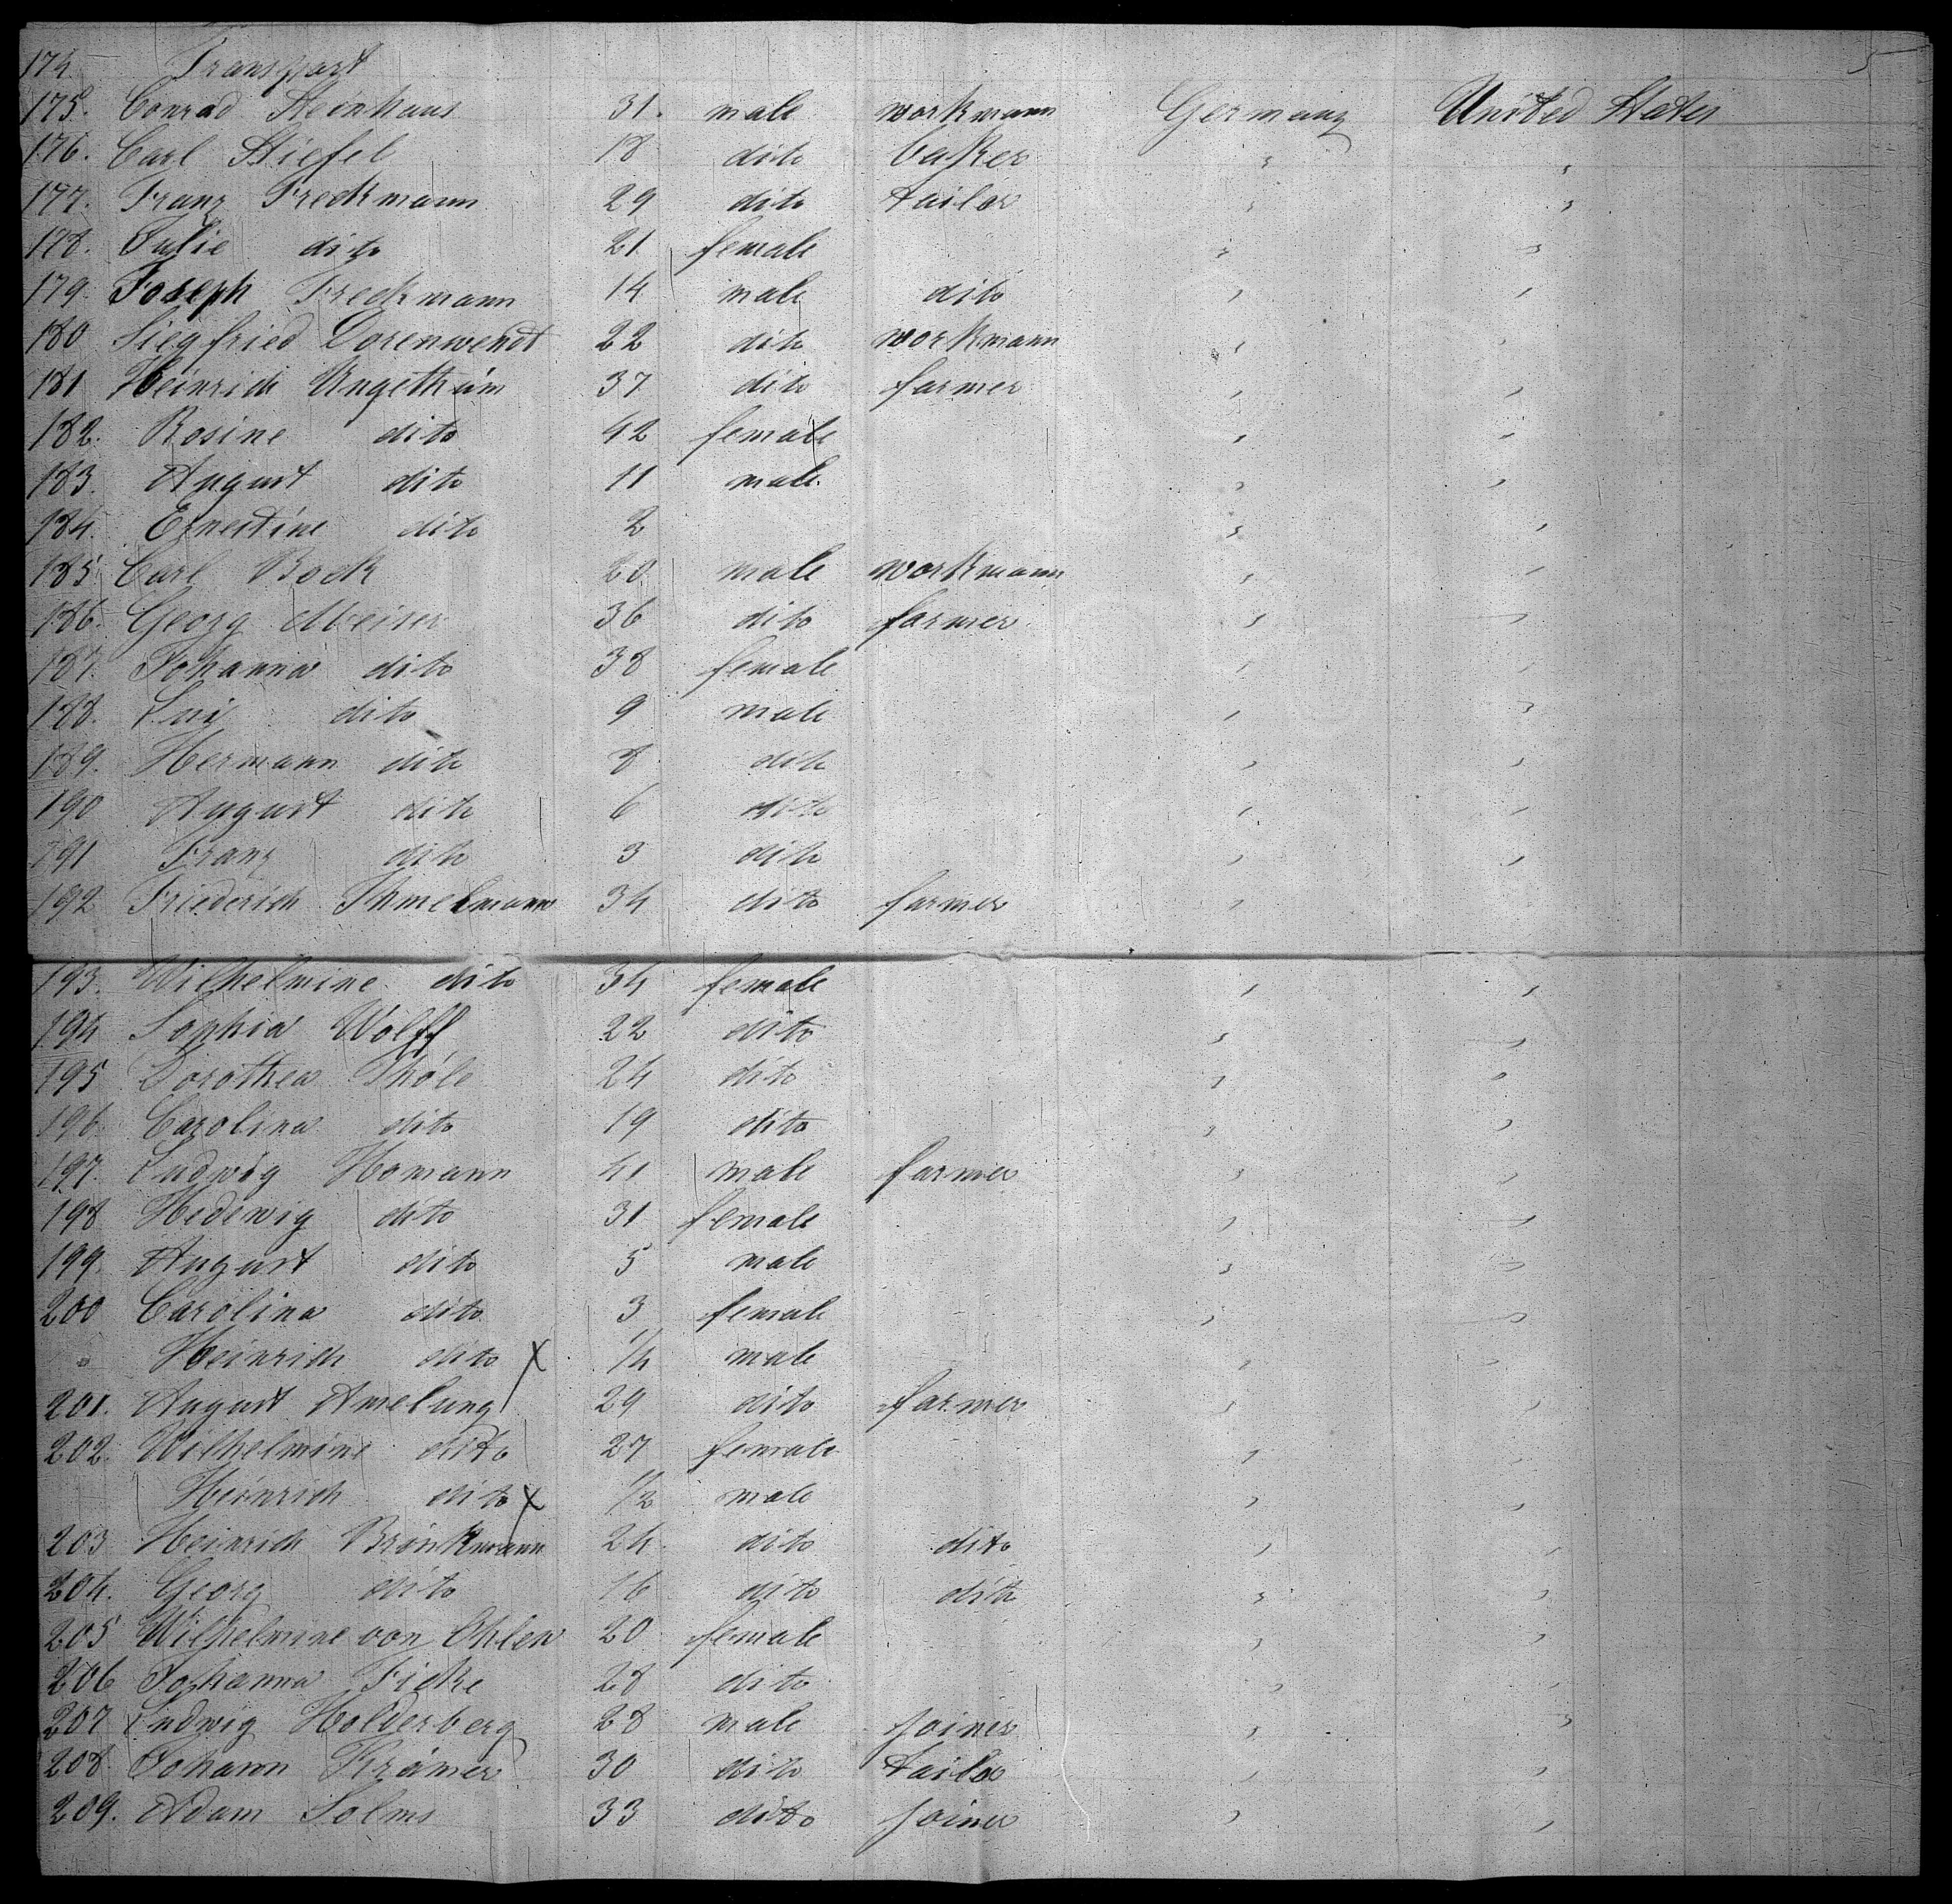 5
174. Transport
175. Conrad Steinhaus 31. male workmann Germany United States
176. Carl Stiefel 18 dito baker " "
177. Franz Freckmann 29 dito tailor " "
178. Julie dito 21 female " "
179. Joseph Freckmann 14 male dito " "
180 Siegfried Dorenwendt 22 dito workmann " "
181 Heinrich Ungethüm 37 dito farmer " "
182. Rosine dito 42 female " "
183. August dito 11 male. " "
184. Ernestine dito 2 " "
185. Carl Bock 20 male workmann " "
186. Georg Meiser 36 dito farmer " "
187. Johanna dito 38 female " "
188. dito 9 male " "
189. Hermann dito 8 dito " "
190 August dito 6 dito " "
191 Franz dito 3 dito " "
192 Friederich Thmelmann 34 dito farmer "
193. Wilhelmine dito 34 female " "
194 Sophia Wolff 22 dito " "
195 Dorothea Thöle 24 dito " "
196 Carolina dito 19 dito " "
197. Ludwig Homann 41 male farmer " "
198 Hedewig dito 31 female " "
199. August dito 5 male " "
200 Carolina dito 3 female " "
" Heinrich dito X 1/4 male " "
201. August Amelung 29 dito farmer " "
202. Wilhelmine dito 27 female " "
Heinrich dito X 1/2 male " "
203 Heinrich Brinkmann 24 dito dito " "
204. Georg dito 16 dito dito " "
205 Wilhelmine von Ohlen 20 female " "
206 Johanna Ficke 28 dito " "
207 Ludwig Holderberg 28 male joiner " "
208. Johann Krämer 30 dito tailor " "
209. Adam Solms 33 dito joiner " "